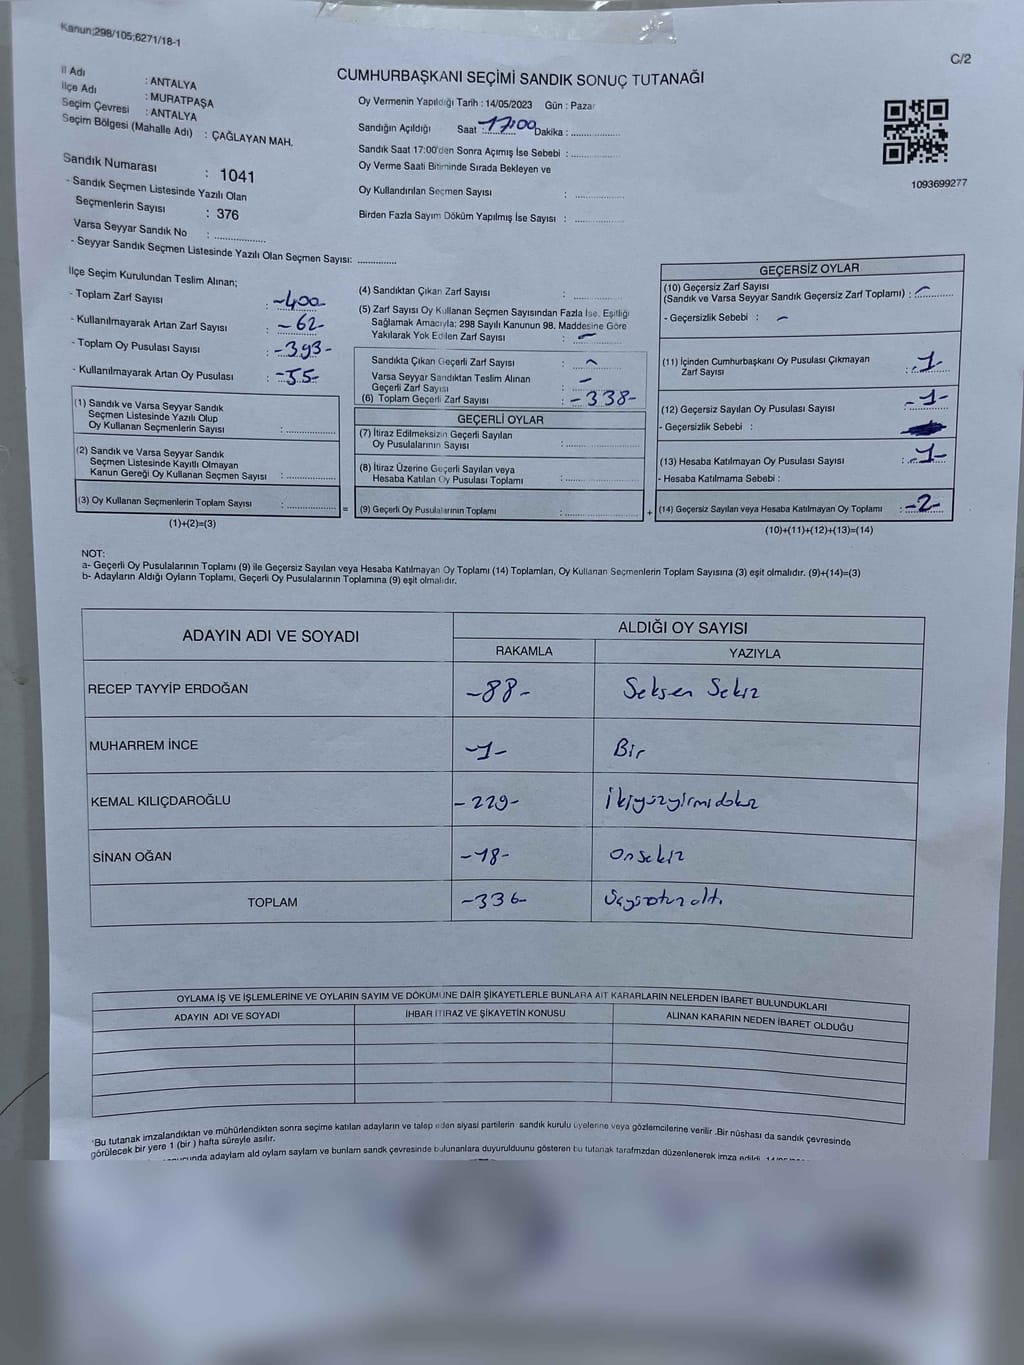 Kanun;298/105;6271/18-1
C/2
CUMHURBAŞKANI SEÇİMİ SANDIK SONUÇ TUTANAĞI
İl Adı : ANTALYA
İlçe Adı : MURATPAŞA
Seçim Çevresi : ANTALYA
Seçim Bölgesi (Mahalle Adı) : ÇAĞLAYAN MAH.
Sandık Numarası : 1041
- Sandık Seçmen Listesinde Yazılı Olan
Seçmenlerin Sayısı : 376
Varsa Seyyar Sandık No : ..............
- Seyyar Sandık Seçmen Listesinde Yazılı Olan Seçmen Sayısı: ............
Oy Vermenin Yapıldığı Tarih : 14/05/2023 Gün : Pazar
Sandığın Açıldığı Saat : 17:00 Dakika : ..............
Sandık Saat 17:00'den Sonra Açımış İse Sebebi : ..............
Oy Verme Saati Bitiminde Sırada Bekleyen ve
Oy Kullandırılan Seçmen Sayısı : ..............
Birden Fazla Sayım Döküm Yapılmış İse Sayısı : ..............
1093699277
İlçe Seçim Kurulundan Teslim Alınan;
- Toplam Zarf Sayısı : -400-
- Kullanılmayarak Artan Zarf Sayısı : -62-
- Toplam Oy Pusulası Sayısı : -393-
- Kullanılmayarak Artan Oy Pusulası : -55-
(1) Sandık ve Varsa Seyyar Sandık
Seçmen Listesinde Yazılı Olup
Oy Kullanan Seçmenlerin Sayısı : ..............
(2) Sandık ve Varsa Seyyar Sandık
Seçmen Listesinde Kayıtlı Olmayan
Kanun Gereği Oy Kullanan Seçmen Sayısı : ..............
(3) Oy Kullanan Seçmenlerin Toplam Sayısı : .............. =
(1)+(2)=(3)
(4) Sandıktan Çıkan Zarf Sayısı : ..............
(5) Zarf Sayısı Oy Kullanan Seçmen Sayısından Fazla İse, Eşitliği
Sağlamak Amacıyla; 298 Sayılı Kanunun 98. Maddesine Göre
Yakılarak Yok Edilen Zarf Sayısı : -
Sandıkta Çıkan Geçerli Zarf Sayısı : -
Varsa Seyyar Sandıktan Teslim Alınan
Geçerli Zarf Sayısı : -
(6) Toplam Geçerli Zarf Sayısı : -338-
GEÇERLİ OYLAR
(7) İtiraz Edilmeksizin Geçerli Sayılan
Oy Pusulalarının Sayısı : ..............
(8) İtiraz Üzerine Geçerli Sayılan veya
Hesaba Katılan Oy Pusulası Toplamı : ..............
(9) Geçerli Oy Pusulalarının Toplamı : .............. +
GEÇERSİZ OYLAR
(10) Geçersiz Zarf Sayısı
(Sandık ve Varsa Seyyar Sandık Geçersiz Zarf Toplamı) : -
- Geçersizlik Sebebi : -
(11) İçinden Cumhurbaşkanı Oy Pusulası Çıkmayan
Zarf Sayısı : -1-
(12) Geçersiz Sayılan Oy Pusulası Sayısı -1-
- Geçersizlik Sebebi :
(13) Hesaba Katılmayan Oy Pusulası Sayısı : -1-
- Hesaba Katılmama Sebebi :
(14) Geçersiz Sayılan veya Hesaba Katılmayan Oy Toplamı : -2-
(10)+(11)+(12)+(13)=(14)
NOT:
a- Geçerli Oy Pusulalarının Toplamı (9) ile Geçersiz Sayılan veya Hesaba Katılmayan Oy Toplamı (14) Toplamları, Oy Kullanan Seçmenlerin Toplam Sayısına (3) eşit olmalıdır. (9)+(14)=(3)
b- Adayların Aldığı Oyların Toplamı, Geçerli Oy Pusulalarının Toplamına (9) eşit olmalıdır.
ADAYIN ADI VE SOYADI
ALDIĞI OY SAYISI
RAKAMLA YAZIYLA
RECEP TAYYİP ERDOĞAN -88- Seksen Sekiz
MUHARREM İNCE -1- Bir
KEMAL KILIÇDAROĞLU -229- İkiyüzyirmidokuz
SİNAN OĞAN -18- Onsekiz
TOPLAM -336- Üçyüzotuz altı
OYLAMA İŞ VE İŞLEMLERİNE VE OYLARIN SAYIM VE DÖKÜMÜNE DAİR ŞİKAYETLERLE BUNLARA AİT KARARLARIN NELERDEN İBARET BULUNDUKLARI
ADAYIN ADI VE SOYADI İHBAR İTİRAZ VE ŞİKAYETİN KONUSU ALINAN KARARIN NEDEN İBARET OLDUĞU
*Bu tutanak imzalandıktan ve mühürlendikten sonra seçime katılan adayların ve talep eden siyasi partilerin sandık kurulu üyelerine veya gözlemcilerine verilir .Bir nüshası da sandık çevresinde
görülecek bir yere 1 (bir ) hafta süreyle asılır.
adaylam ald oylam saylam ve bunlam sandk çevresinde bulunanlara duyurulduunu gösteren bu tutanak tarafmzdan düzenlenerek imza edildi.